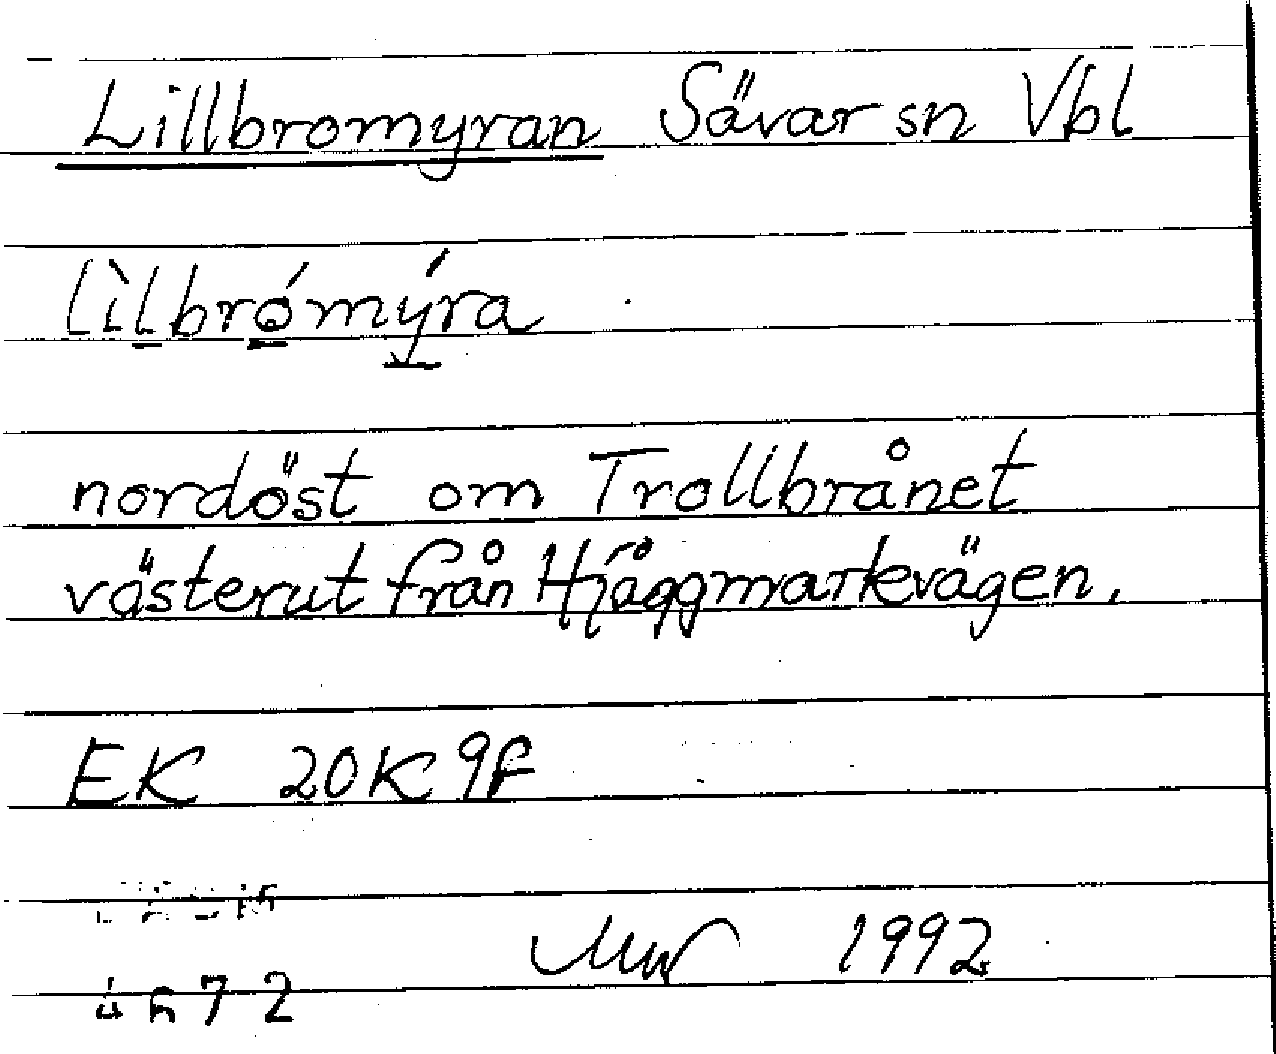 Lillbromyran Sävar sn Vbl
lìlbrómýra
nordöst om Trollbrånet
västerut från Hjåggmarkevägen.
EK 20K 9f
1992